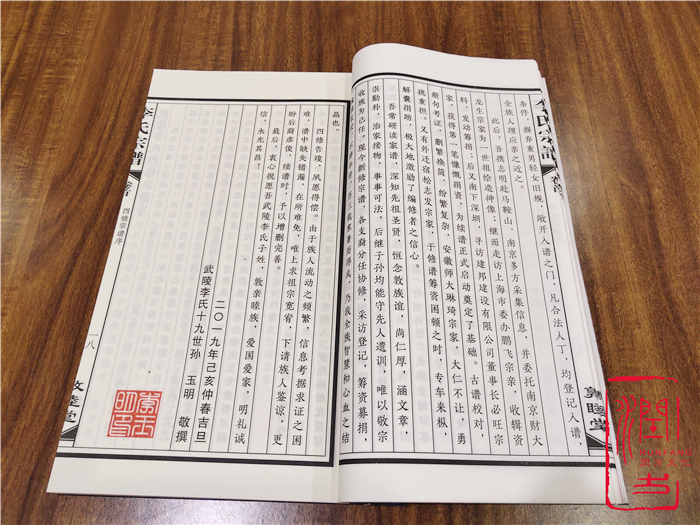 条件，摒弃重男轻女旧规，敞开入谱之门，凡合法人丁，均登记入谱，
全族人理应亲之近之。
此后，吾携志明赴马鞍山、南京多方采集信息，并委托南京财大
龙生宗家为一世祖绘造神像，继而走访上海市委办鹏飞宗亲，收辑资
料，发动筹捐；后又南下深圳，寻访建邦建设有限公司董事长必旺宗
家，获得第一笔慷慨捐资，为续谱正式启动奠定了基础。古谱校对，
断句考证，删繁换简，纷繁复杂，安徽师大琳琦宗家，大仁不让，勇
挑重担。又有外迁宿松志发宗家，于修谱筹资困顿之时，专车来枞，
解囊捐助，极大地激励了编修者之信心。
吾常研读家谱，深知先祖圣贤，恒念敦族谊，尚仁厚，涵文章，
崇勤朴，治家接物，事事可法，后继子孙均能守先人遗训，唯以敬宗
收族为己任。现今新修宗谱，各支裔分任协修，采访登记，筹资募捐，
乃我全族智慧和心血之结
晶也。
四修告竣，夙愿得偿。由于族人流动之频繁，信息考据求证之困
难，谱中缺失错漏，在所难免，唯上求祖宗宽宥，下请族人鉴谅，更
盼后裔彦俊，续谱时，予以增删完善。
最后，衷心祝愿吾武陵李氏子姓，敦亲睦族，爱国爱家，明礼诚
信，永光其昌！
二〇一九年己亥仲春吉旦
武陵李氏十九世孙 玉明 敬撰
李氏宗谱
卷首
四修宗谱序
一八
敦睦堂
李氏宗谱
卷首
敦睦堂
润
书
RUNFANG